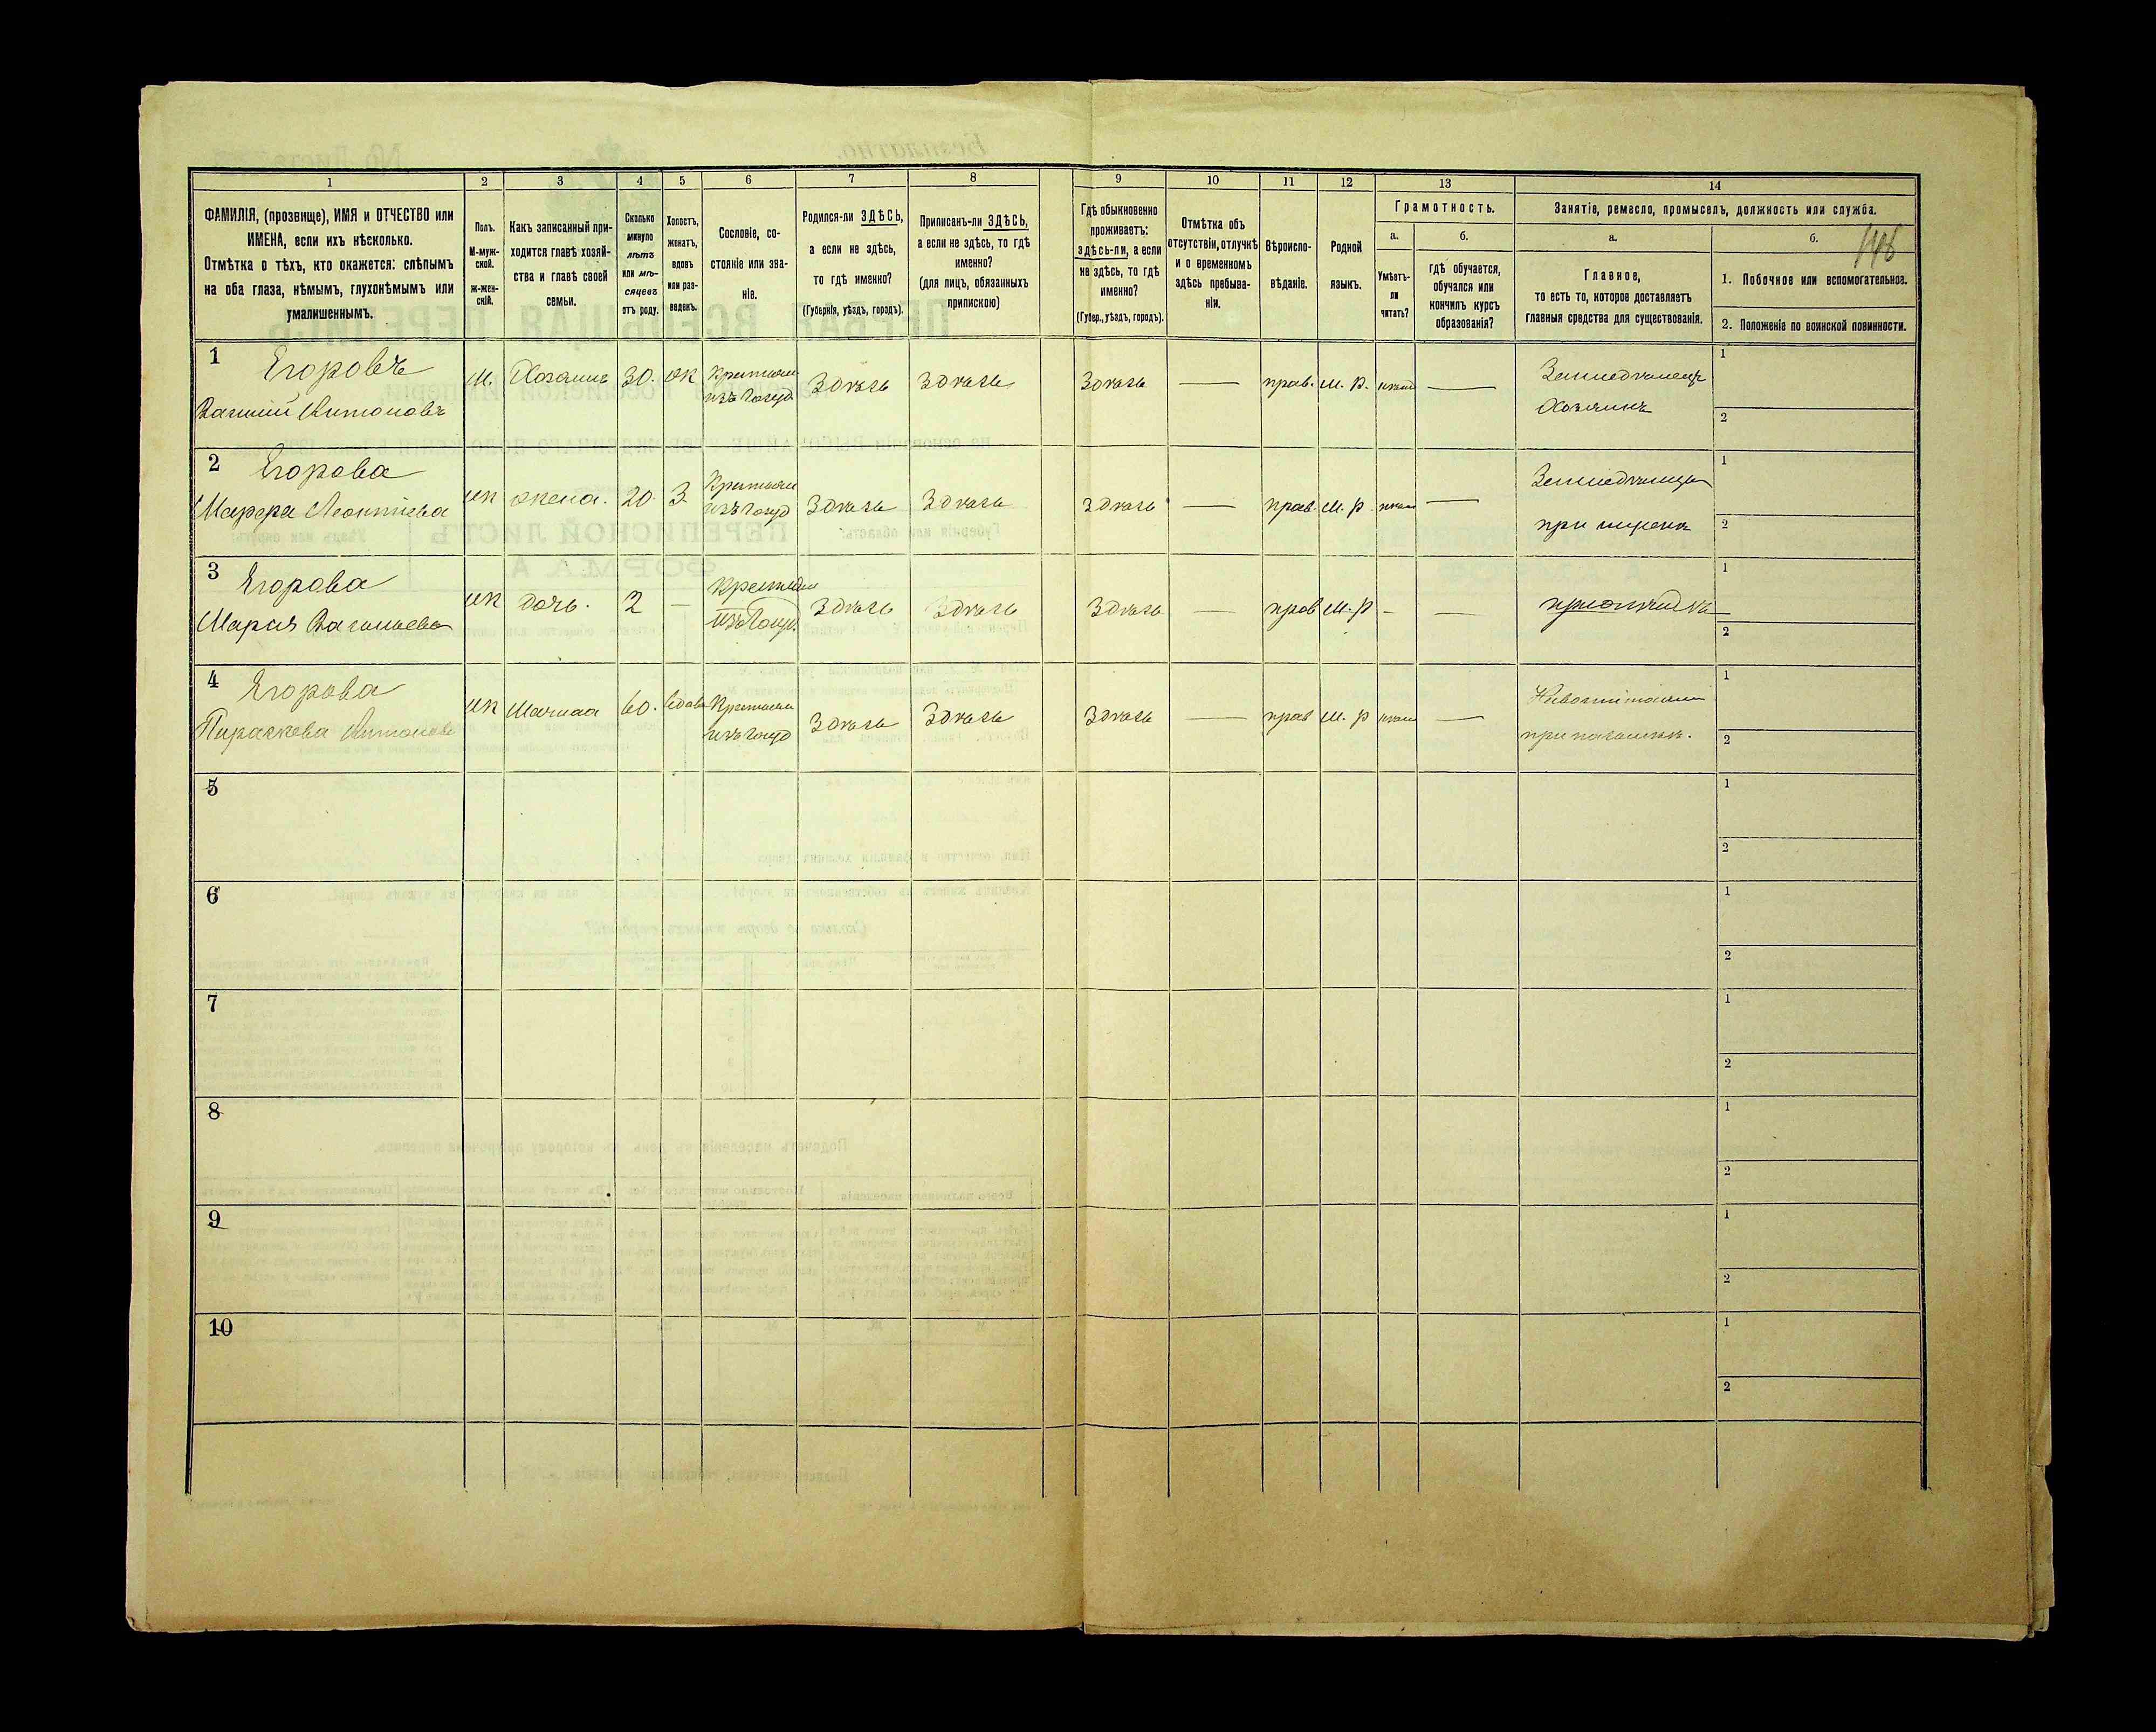 1 2 3 4 5 6 7 8 9 10 11 12 13 14
ФАМИЛІЯ, (прозвище), ИМЯ и ОТЧЕСТВО или
ИМЕНА, если ихъ нѣсколько.
Отмѣтка о тѣхъ, кто окажется: слѣпымъ
на оба глаза, нѣмымъ, глухонѣмымъ или
умалишеннымъ.
Полъ.
М-муж-
ской.
ж-жен-
скій.
Какъ записанный при-
ходится главѣ хозяй-
ства и главѣ своей
семьи.
Сколько
минуло
лѣтъ
или мѣ-
сяцевъ
отъ роду.
Холостъ,
женатъ,
вдовъ
или раз-
веденъ.
Сословіе, со-
стояніе или зва-
ніе.
Родился-ли ЗДѢСЬ,
а если не здѣсь,
то гдѣ именно?
(Губернія, уѣздъ, городъ).
Приписанъ-ли ЗДѢСЬ,
а если не здѣсь, то гдѣ
именно?
(для лицъ, обязанныхъ
припискою)
Гдѣ обыкновенно
проживаетъ:
здѣсь-ли, а если
не здѣсь, то гдѣ
именно?
(Губер., уѣздъ, городъ).
Отмѣтка объ
отсутствіи, отлучкѣ
и о временномъ
здѣсь пребыва-
ніи.
Вѣроиспо-
вѣданіе.
Родной
языкъ.
Грамотность.
а.
Умѣетъ-
ли
читать?
б.
гдѣ обучается,
обучался или
кончилъ курсъ
образованія?
Занятіе, ремесло, промыселъ, должность или служба.
а.
Главное,
то есть то, которое доставляетъ
главныя средства для существованія.
б.
1. Побочное или вспомогательное.
2. Положеніе по воинской повинности.
1 Егоровъ
Антоновъ
м. Хозяинъ 30. жн Крестьян
изъ госуд
Здѣсь Здѣсь Здѣсь — прав. м. р. —
Земледѣлецъ
Хозяинъ
1
2
2 Егорова
Марфа Леонтіева
жн жена. 20. З. Крестьян
изъ госуд
Здѣсь Здѣсь Здѣсь — прав. м. р. —
Земледѣлица
при
1
2
3 Егорова
Марія
жн дочь. 2 — Крестьян
изъ госуд.
Здѣсь Здѣсь Здѣсь — прав м. р — —
1
2
4 Егорова
жн 60. вдова Крестьян
изъ госуд
Здѣсь Здѣсь Здѣсь — прав м. р —
при
1
2
5
1
2
6
1
2
7
1
2
8
1
2
9
1
2
10
1
2